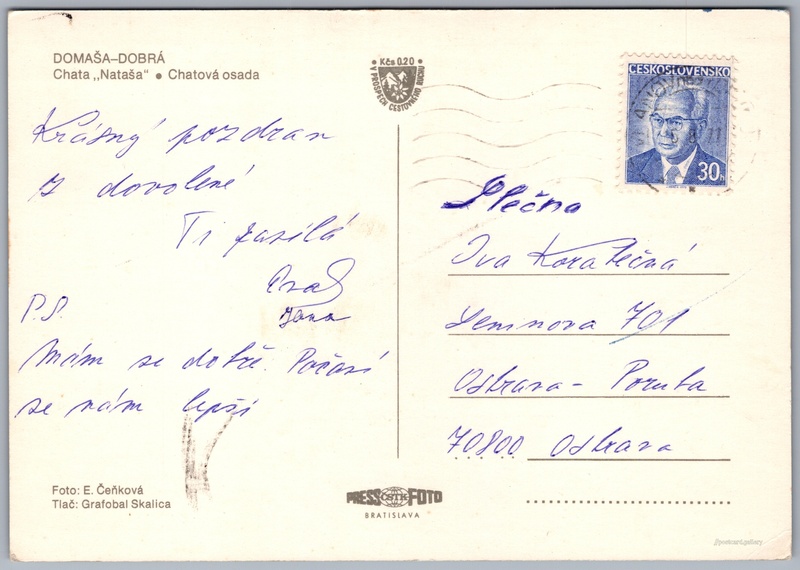 DOMAŠA–DOBRÁ
Chata „Nataša“ ● Chatová osada
Kčs 0.20
V PROSPECH CESTOVNÉHO RUCHU
ČESKOSLOVENSKO
30h
Krásný pozdrav
z dovolené
Ti zasílá
Jana
P.S.
Mám se dobře. Počasí
se nám lepší
Slečna
Iva Koratečná
701
Ostrava - Poruba
70800 Ostrava
Foto: E. Čeňková
Tlač: Grafobal Skalica
PRESS ČSTK FOTO
BRATISLAVA